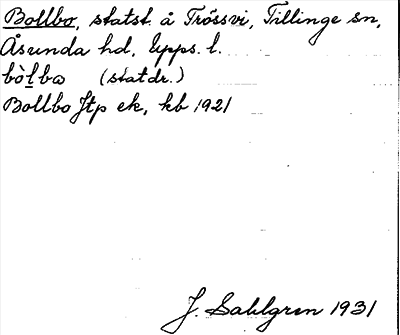 Bollbo, statst. å Trössvi, Tillinge sn,
Åsunda hd, Upps. l.
bòlbo (statdr.)
Bollbo Jtp ek, kb 1921
J. Sahlgren 1931